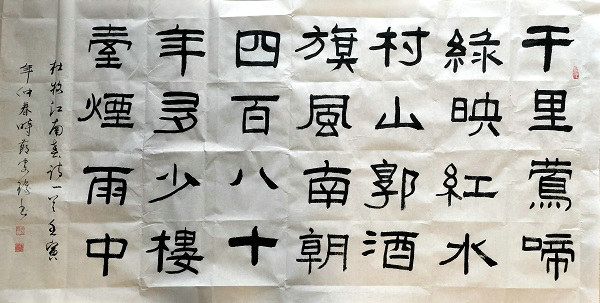 千里鶯啼
綠映紅水
村山郭酒
旗風南朝
四百八十
年多少樓
臺煙雨中
杜牧江南春詩一首壬寅
年仲春時